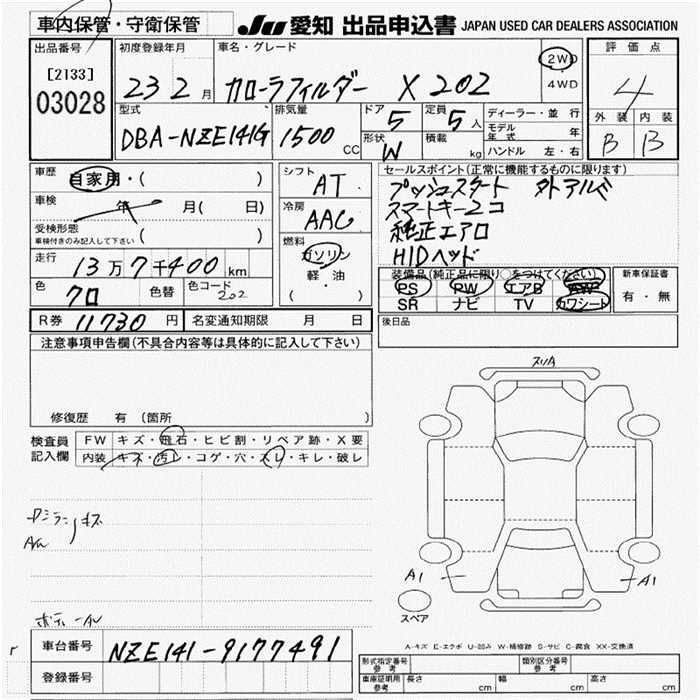 車内保管・守衛保管
JU 愛知 出品申込書 JAPAN USED CAR DEALERS ASSOCIATION
出品番号
[2133]
03028
初度登録年月
23 2 月
車名・グレード
カローラフィルダー X 202
2WD
4WD
評価点
4
外装 内装
B B
型式
DBA-NZE141G
排気量
1500 CC
ドア
5
形状
W
定員
5 人
積載
kg
ディーラー・並行
モデル年式 年
ハンドル 左・右
車歴 自家用・( )
車検 年 月( 日)
受検形態
車検付きのみ記入して下さい ( )
走行 13万7千400 km
色 クロ 色替 色コード 202
シフト
AT
冷房
AAC
燃料
ガソリン
軽・油
( )
セールスポイント(正常に機能するものに限ります)
プッシュスタート 外アルミ
スマートキー2コ
純正エアロ
HIDヘッド
装備品(純正品に限り○をつけてください)
PS PW エアB AW
SR ナビ TV カワシート
新車保証書
有・無
R券 11730 円 名変通知期限 月 日
後日品
注意事項申告欄(不具合内容等は具体的に記入して下さい)
修復歴 有(箇所 )
検査員記入欄
FW キズ・飛石・ヒビ割・リペア跡・X要
内装 キズ・汚レ・コゲ・穴・スレ・キレ・破レ
スリA
A1
A1
スペア
A-キズ E-エクボ U-凹み W-補修跡 S-サビ C-腐食 XX-交換済
車台番号 NZE141-9177491
登録番号
形式指定番号 参考
類別区分番号 参考
車庫証明用 参考 長さ cm 幅 cm 高さ cm